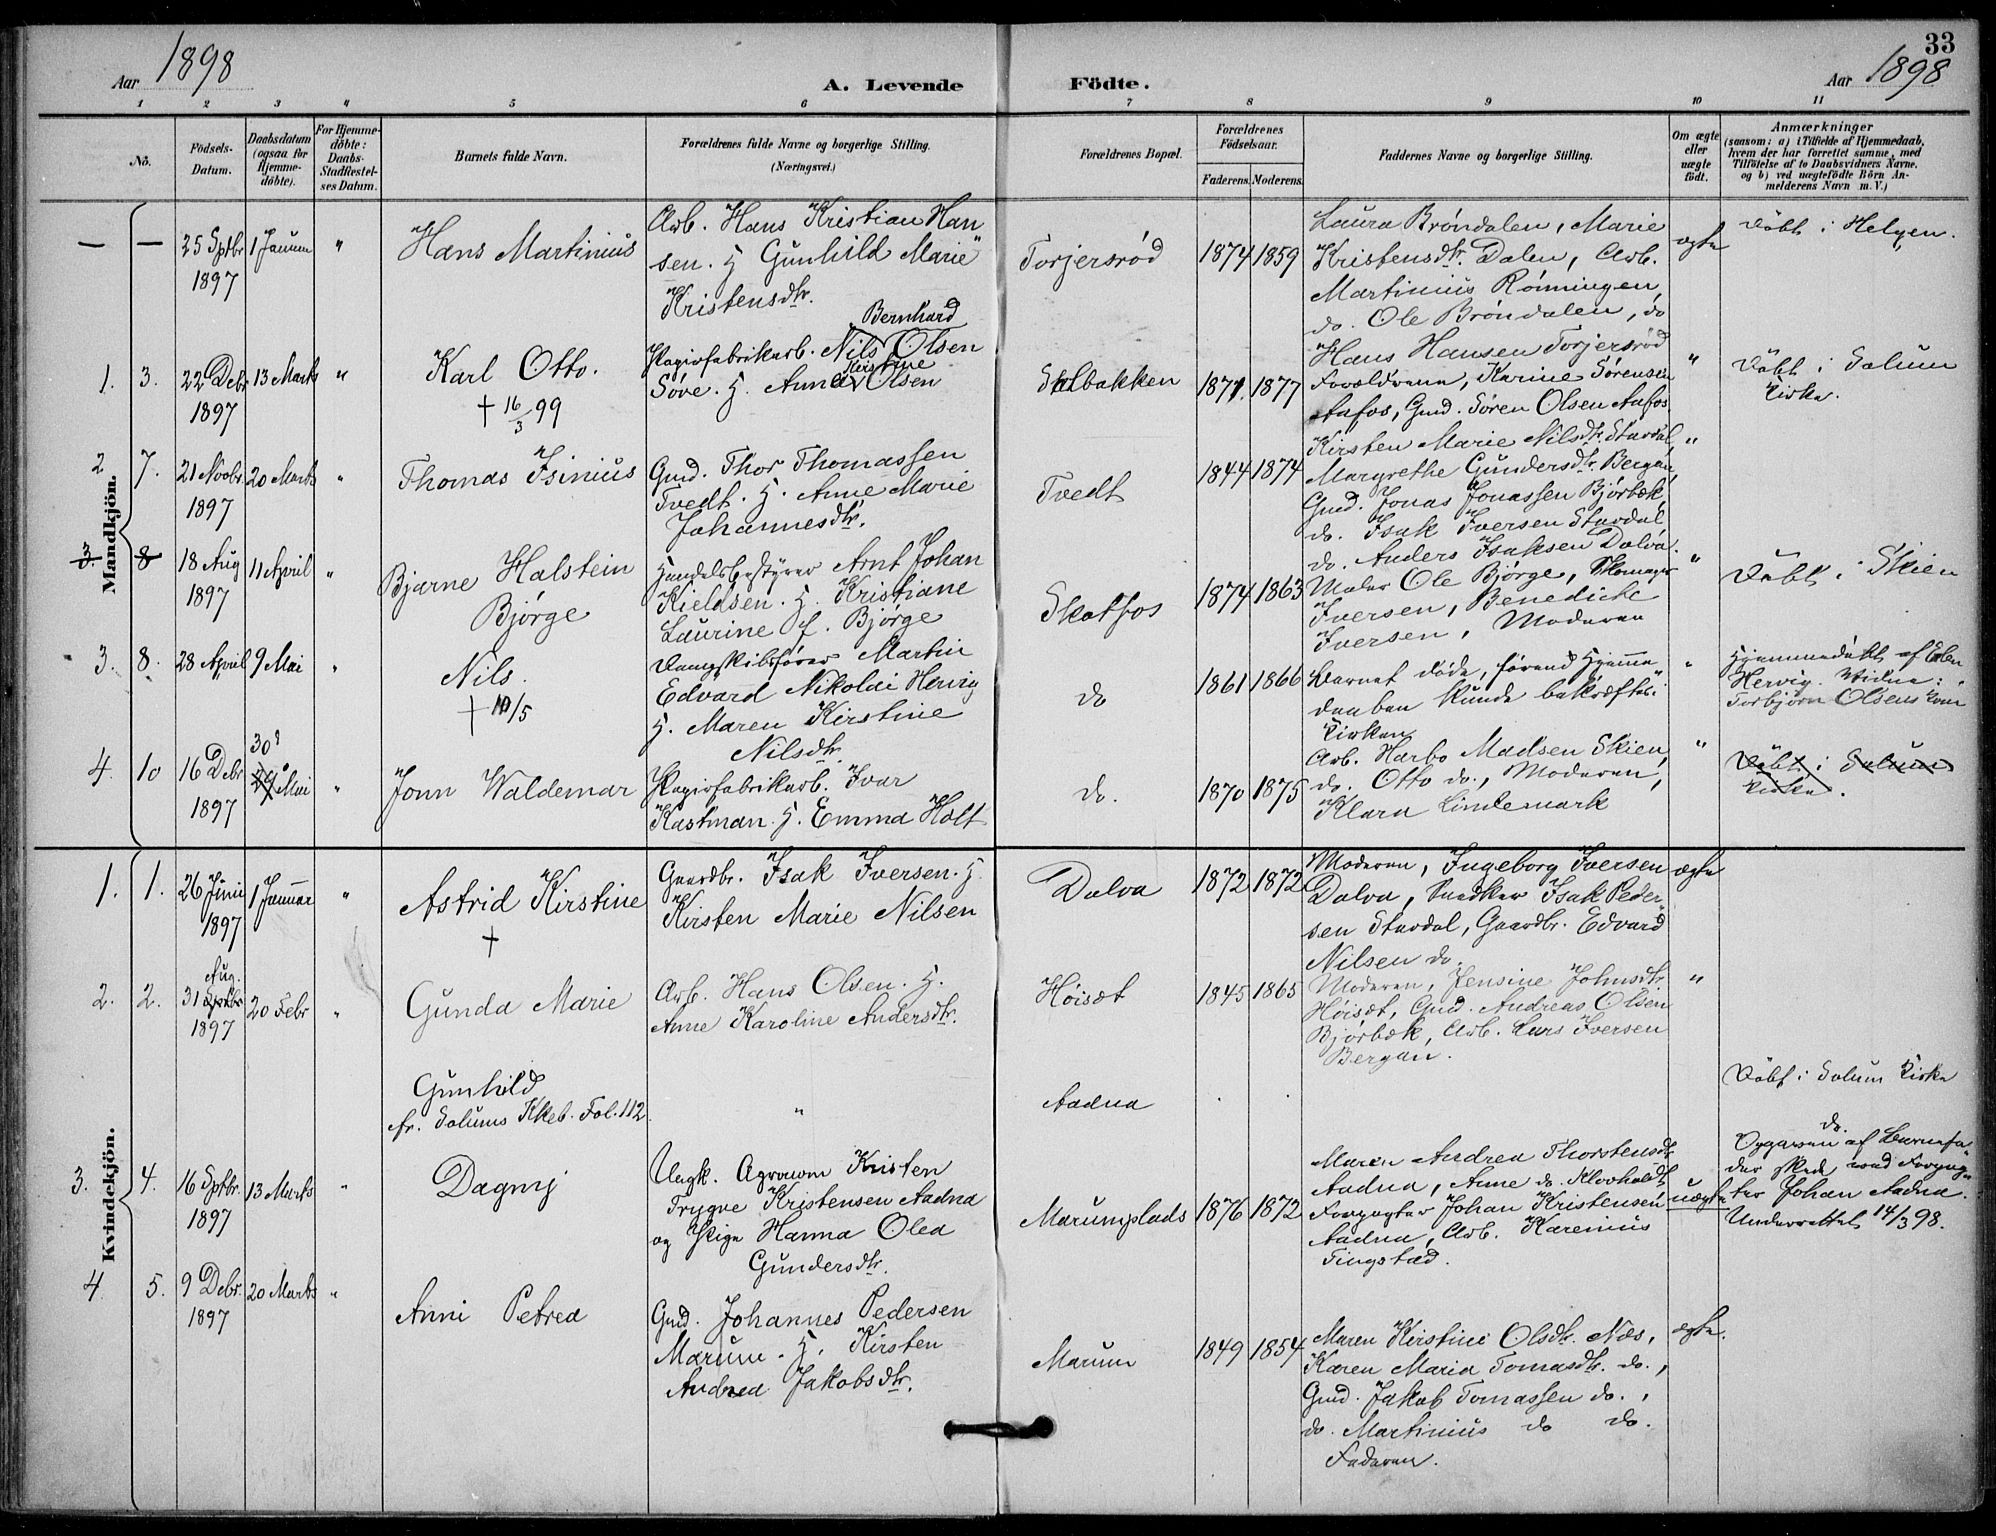 33
Aar 1898
A. Levende Födte.
Aar 1898
1 2 3 4 5 6 7 8 9 10 11
No.
Födsels-
Datum.
Daabsdatum
(ogsaa for
Hjemme-
döbte).
For Hjemme-
döbte:
Daabs-
Stadfestel-
ses Datum.
Barnets fulde Navn.
Forældrenes fulde Navne og borgerlige Stilling.
(Næringsvei.)
Forældrenes Bopæl.
Forældrenes
Födselsaar.
Faderens. Moderens.
Faddernes Navne og borgerlige Stilling.
Om ægte
eller
uægte
født.
Anmærkninger
(saasom: a) i Tilfælde af Hjemmedaab,
hvem der har forrettet samme, med
Tilföielse af to Daabsvidners Navne,
og b) ved uægtefödte Börn An-
melderens Navn m. V.)
Mandkjön.
— — 25 Sptbr
1897
1 Januar
"
Hans Martinius
Arb. Hans Kristian Han
sen. H Gunhild Marie
Kristensdtr.
Torjersrød
1874 1859
Laura Brøndalen, Marie
Kristensdtr. Dalen, Arb.
Martinius Rønningen,
do. Ole Brøndalen, do
Hans Hansen Torjersrød
ægte
Døbt i Helgen.
1. 3. 22 Debr
1897
13 Marts
"
Karl Otto.
† 16/3 99
Bernhard
Papirfabrikarb. Nils Olsen
Kirstine
Søve. H. Anne Olsen
Solbakken
1871. 1877
Forældrene, Karine Sørensen
Aafos, Gmd. Søren Olsen Aafos.
"
Døbt i Solum
Kirke.
2 7. 21 Novbr
1897
20 Marts
"
Thomas Isinius
Gmd. Thor Thomassen
Tvedt. H. Anne Marie
Johannesdtr.
Tvedt
1844 1874
Kirsten Marie Nilsdtr. Stavdal,
Margrethe Gundersdtr. Bergan,
Gmd. Jonas Jonassen Bjørbæk,
do. Isak Iversen Stavdal
do. Anders Isaksen Dalva.
"
3. 8 18 Aug
1897
11 April
"
Bjarne Halstein
Bjørge
Handelsbestyrer Arnt Johan
Kieldsen. H. Kristiane
Laurine f. Bjørge
Skotfos
1874 1863
Maler Ole Bjørge, Skomager
Iversen, Benedicte
Iversen, Moderen
"
Døbt i Skien
3. 8. 28 April
9 Mai
"
Nils.
† 10/5
Dampskibsfører Martin
Edvard Nikolai Hervig
H. Maren Kirstine
Nilsdtr.
do
1861 1866
Barnet døde, førend Hjemme
daaben kunde bekræftes i
Kirken
"
Hjemmedøbt af Elen
Hervig. Vidne:
Torbjørn Olsens Kone
4. 10 16 Debr
1897
30
29 Mai
"
Jonn Waldemar
Papirfabrikarb. Ivar
Kastman. H. Emma Holt
do.
1870 1875
Arb. Harbo Madsen Skien,
do. Otto do., Moderen,
Klara Lindemark
"
Døbt i Solum
Kirke.
Kvindekjön.
1. 1. 26 Juni
1897
1 Januar
"
Astrid Kirstine
†
Gaardbr. Isak Iversen. H
Kirsten Marie Nilsen
Dalva
1872 1872
Moderen, Ingeborg Iversen
Dalva, Snedker Isak Peder-
sen Stavdal, Gaardbr. Edvard
Nilsen do.
ægte
2. 2. Aug.
31 Sptbr
1897
20 Febr
"
Gunda Marie
Arb. Hans Olsen. H.
Anne Karoline Andersdtr.
Høisæt
1845 1865
Moderen, Jensine Johnsdtr.
Høisæt, Gmd. Andreas Olsen
Bjørbæk, Arb. Lars Iversen
Bergan.
"
Gunhild
fr. Solums Kkeb. Fol. 112
"
Aadna
Døbt i Solum Kirke
3. 4. 16 Sptbr.
1897
13 Marts
"
Dagny
Ungk. Agronom Kristen
Trygve Kristensen Aadna
og Pige Hanna Olea
Gundersdtr.
Marumplads
1876 1872
Maren Andrea Thorstensdtr.
Aadna, Anne do. Klovholdt
Forpagter Johan Kristensen
Aadna, Arb. Karenius
Tingstad.
uægte
do.
Opgaven af Barnefa-
der sked ved Forpag-
ter Johan Aadna.
Underrettet 14/3 98.
4. 5. 9 Debr.
1897
20 Marts
"
Anni Petrea
Gmd. Johannes Pedersen
Marum. H. Kirsten
Andrea Jakobsdtr.
Marum
1849 1854
Maren Kirstine Olsdtr. Næs,
Karen Maria Tomasdtr. do.,
Gmd. Jakob Tomassen do.,
do. Martinius do do.
Faderen.
ægte.